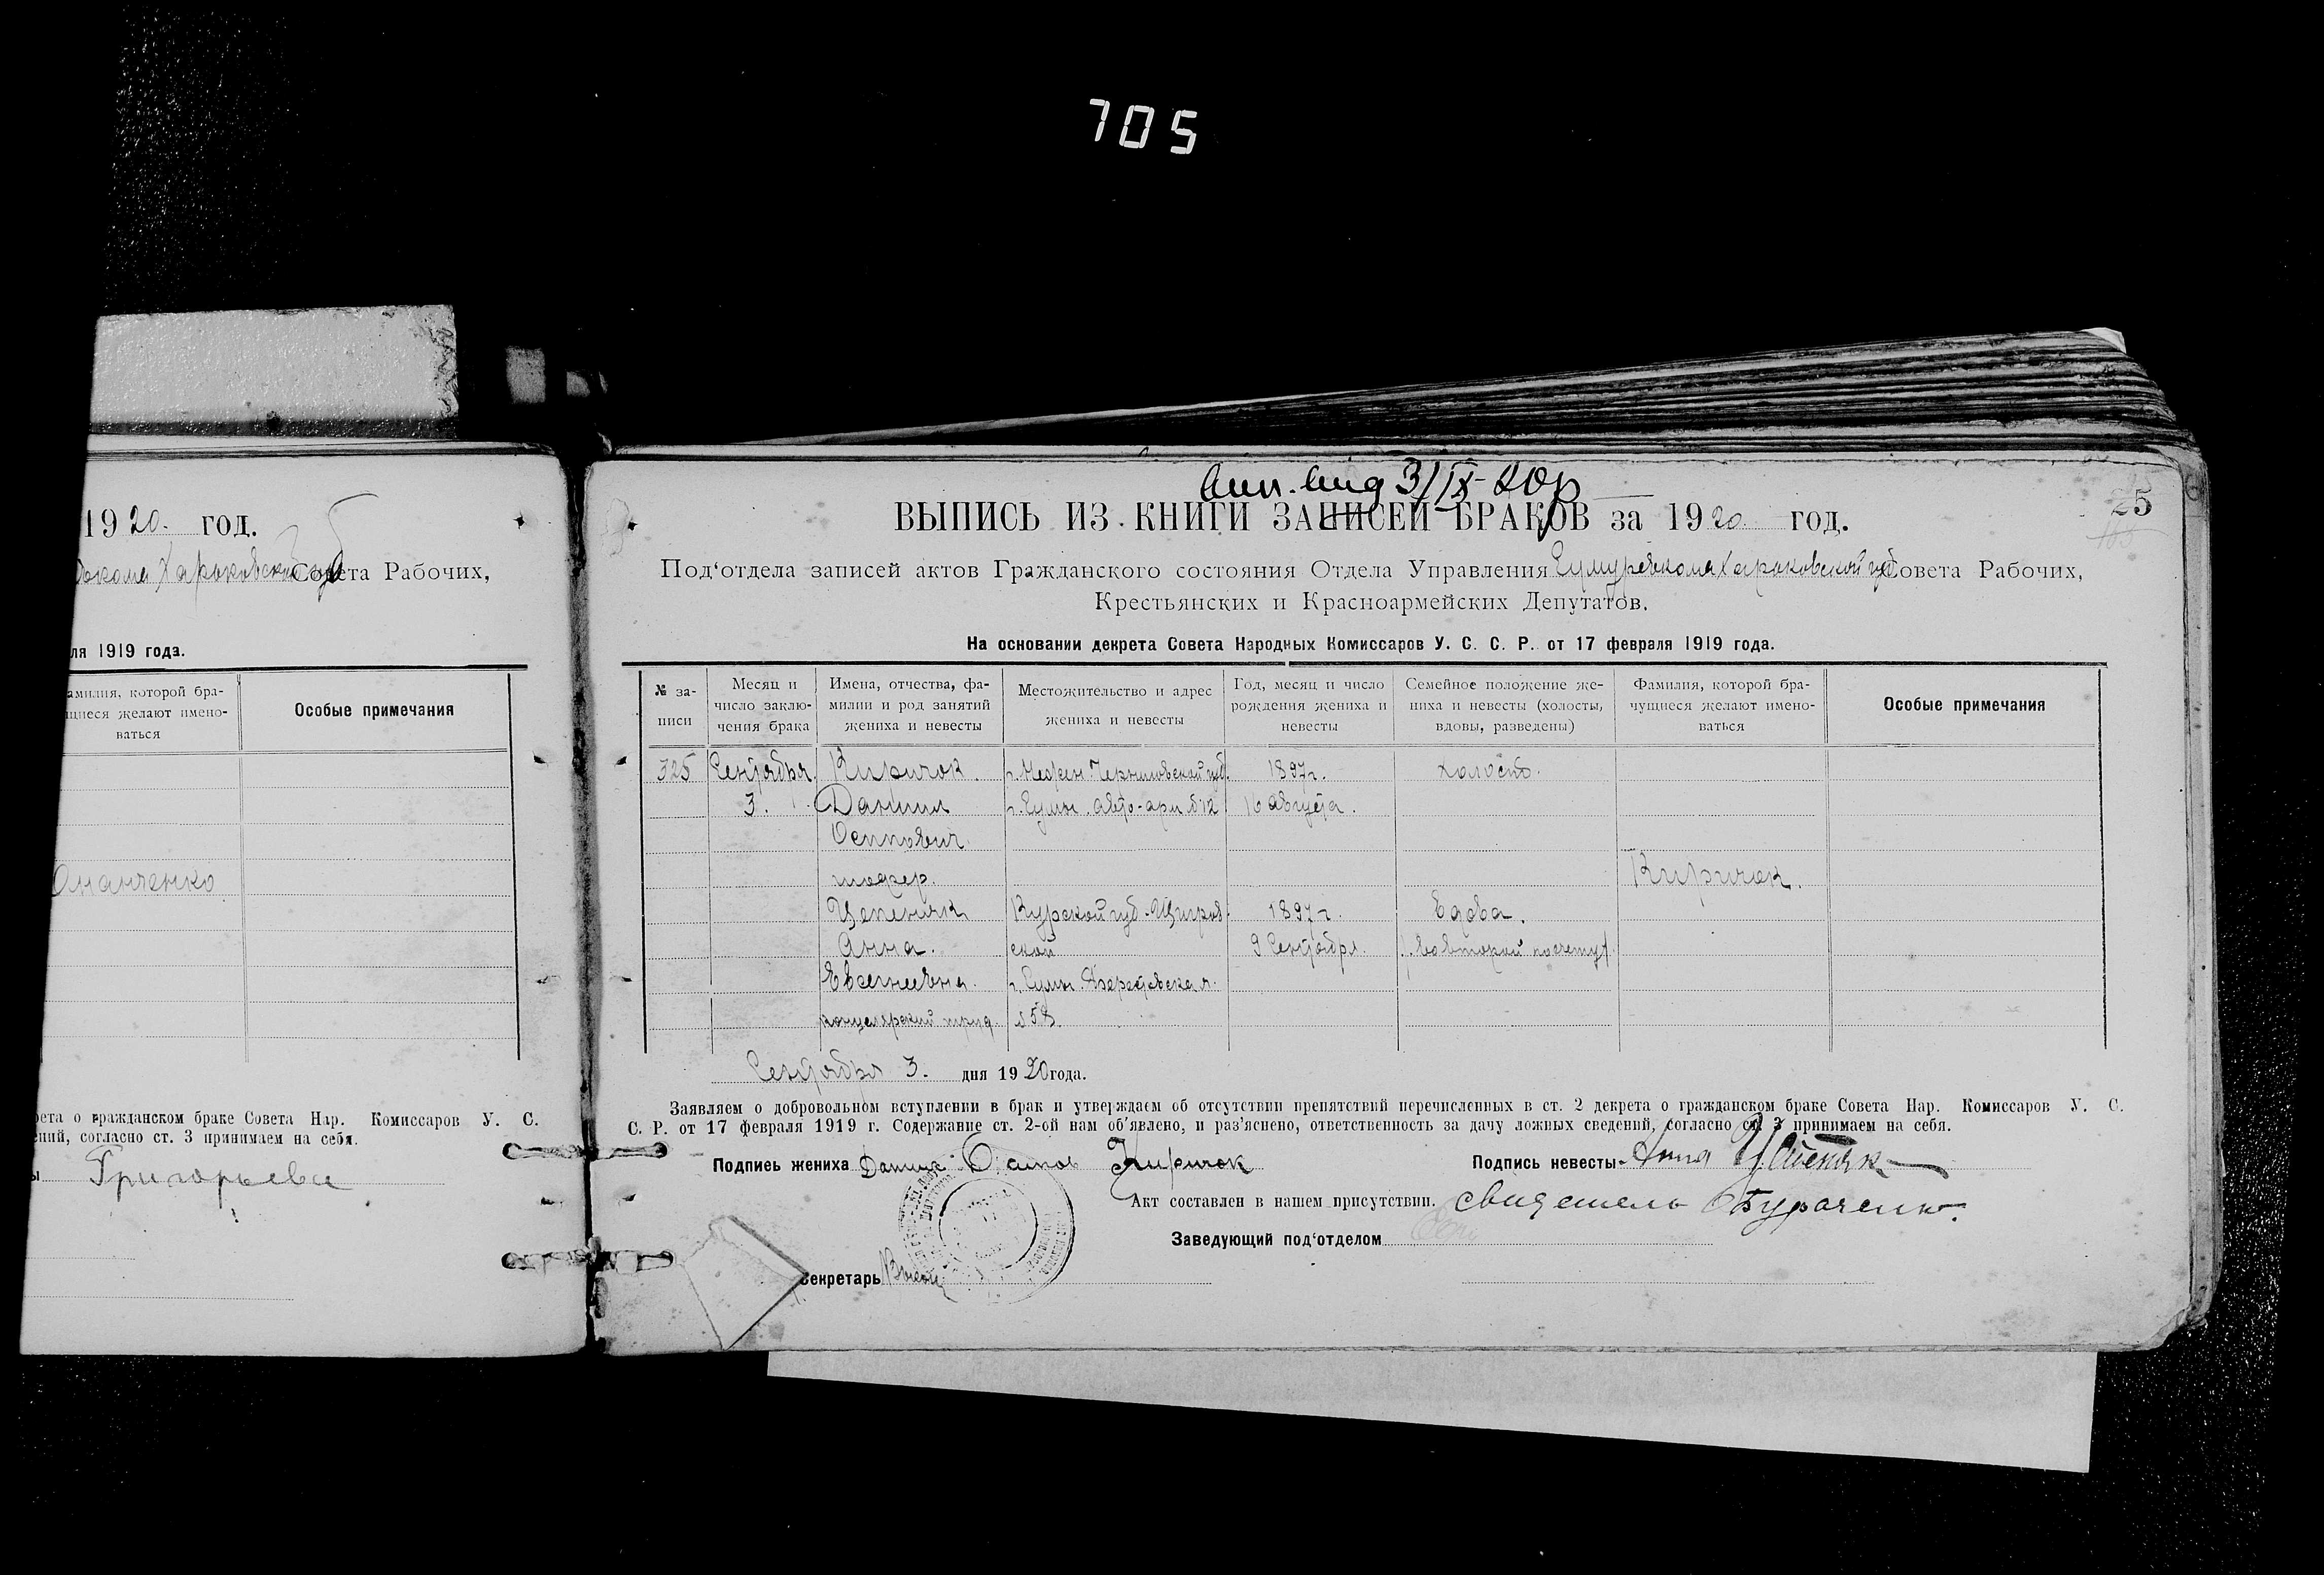 705
1920. год.
Харьковской губ Совета Рабочих,
ля 1919 года.
амилия, которой бра-
щиеся желают имено-
ваться
Особые примечания
Онанченко
рета о гражданском браке Совета Нар. Комиссаров У. С.
ений, согласно ст. 3 принимаем на себя.
ы Григорьева
3/IX-20р
25
ВЫПИСЬ ИЗ КНИГИ ЗАПИСЕЙ БРАКОВ за 1920 год.
Под‘отдела записей актов Гражданского состояния Отдела Управления Сумуревкома Харьковской губ Совета Рабочих,
Крестьянских и Красноармейских Депутатов.
На основании декрета Совета Народных Комиссаров У. С. С. Р. от 17 февраля 1919 года.
№ за-
писи
Месяц и
число заклю-
чения брака
Имена, отчества, фа-
милии и род занятий
жениха и невесты
Местожительство и адрес
жениха и невесты
Год, месяц и число
рождения жениха и
невесты
Семейное положение же-
ниха и невесты (холосты,
вдовы, разведены)
Фамилия, которой бра-
чущиеся желают имено-
ваться
Особые примечания
325 Сентября Киричок. г. Нежен Черниговской губ. 1897г. холост.
3. Даниил г. Сумы. авто-арм. №12 16 августа.
Осипович
шофер. Киричок.
Цепеняк Курской губ. Щигров 1897г. Вдова.
Анна. ской 9 Сентября.
Евгениевна. г. Сумы
канцелярский труд. №58.
Сентября 3. дня 1920 года.
Заявляем о добровольном вступлении в брак и утверждаем об отсутствии препятствий перечисленных в ст. 2 декрета о гражданском браке Совета Нар. Комиссаров У. С.
С. Р. от 17 февраля 1919 г. Содержание ст. 2-ой нам об'явлено, и раз'яснено, ответственность за дачу ложных сведений, согласно ст. 3 принимаем на себя.
Подпись жениха Данил Осипов Киричок
Подпись невесты Анна Цепеняк
Акт составлен в нашем присутствии. свидетель
Заведующий под‘отделом
Секретарь